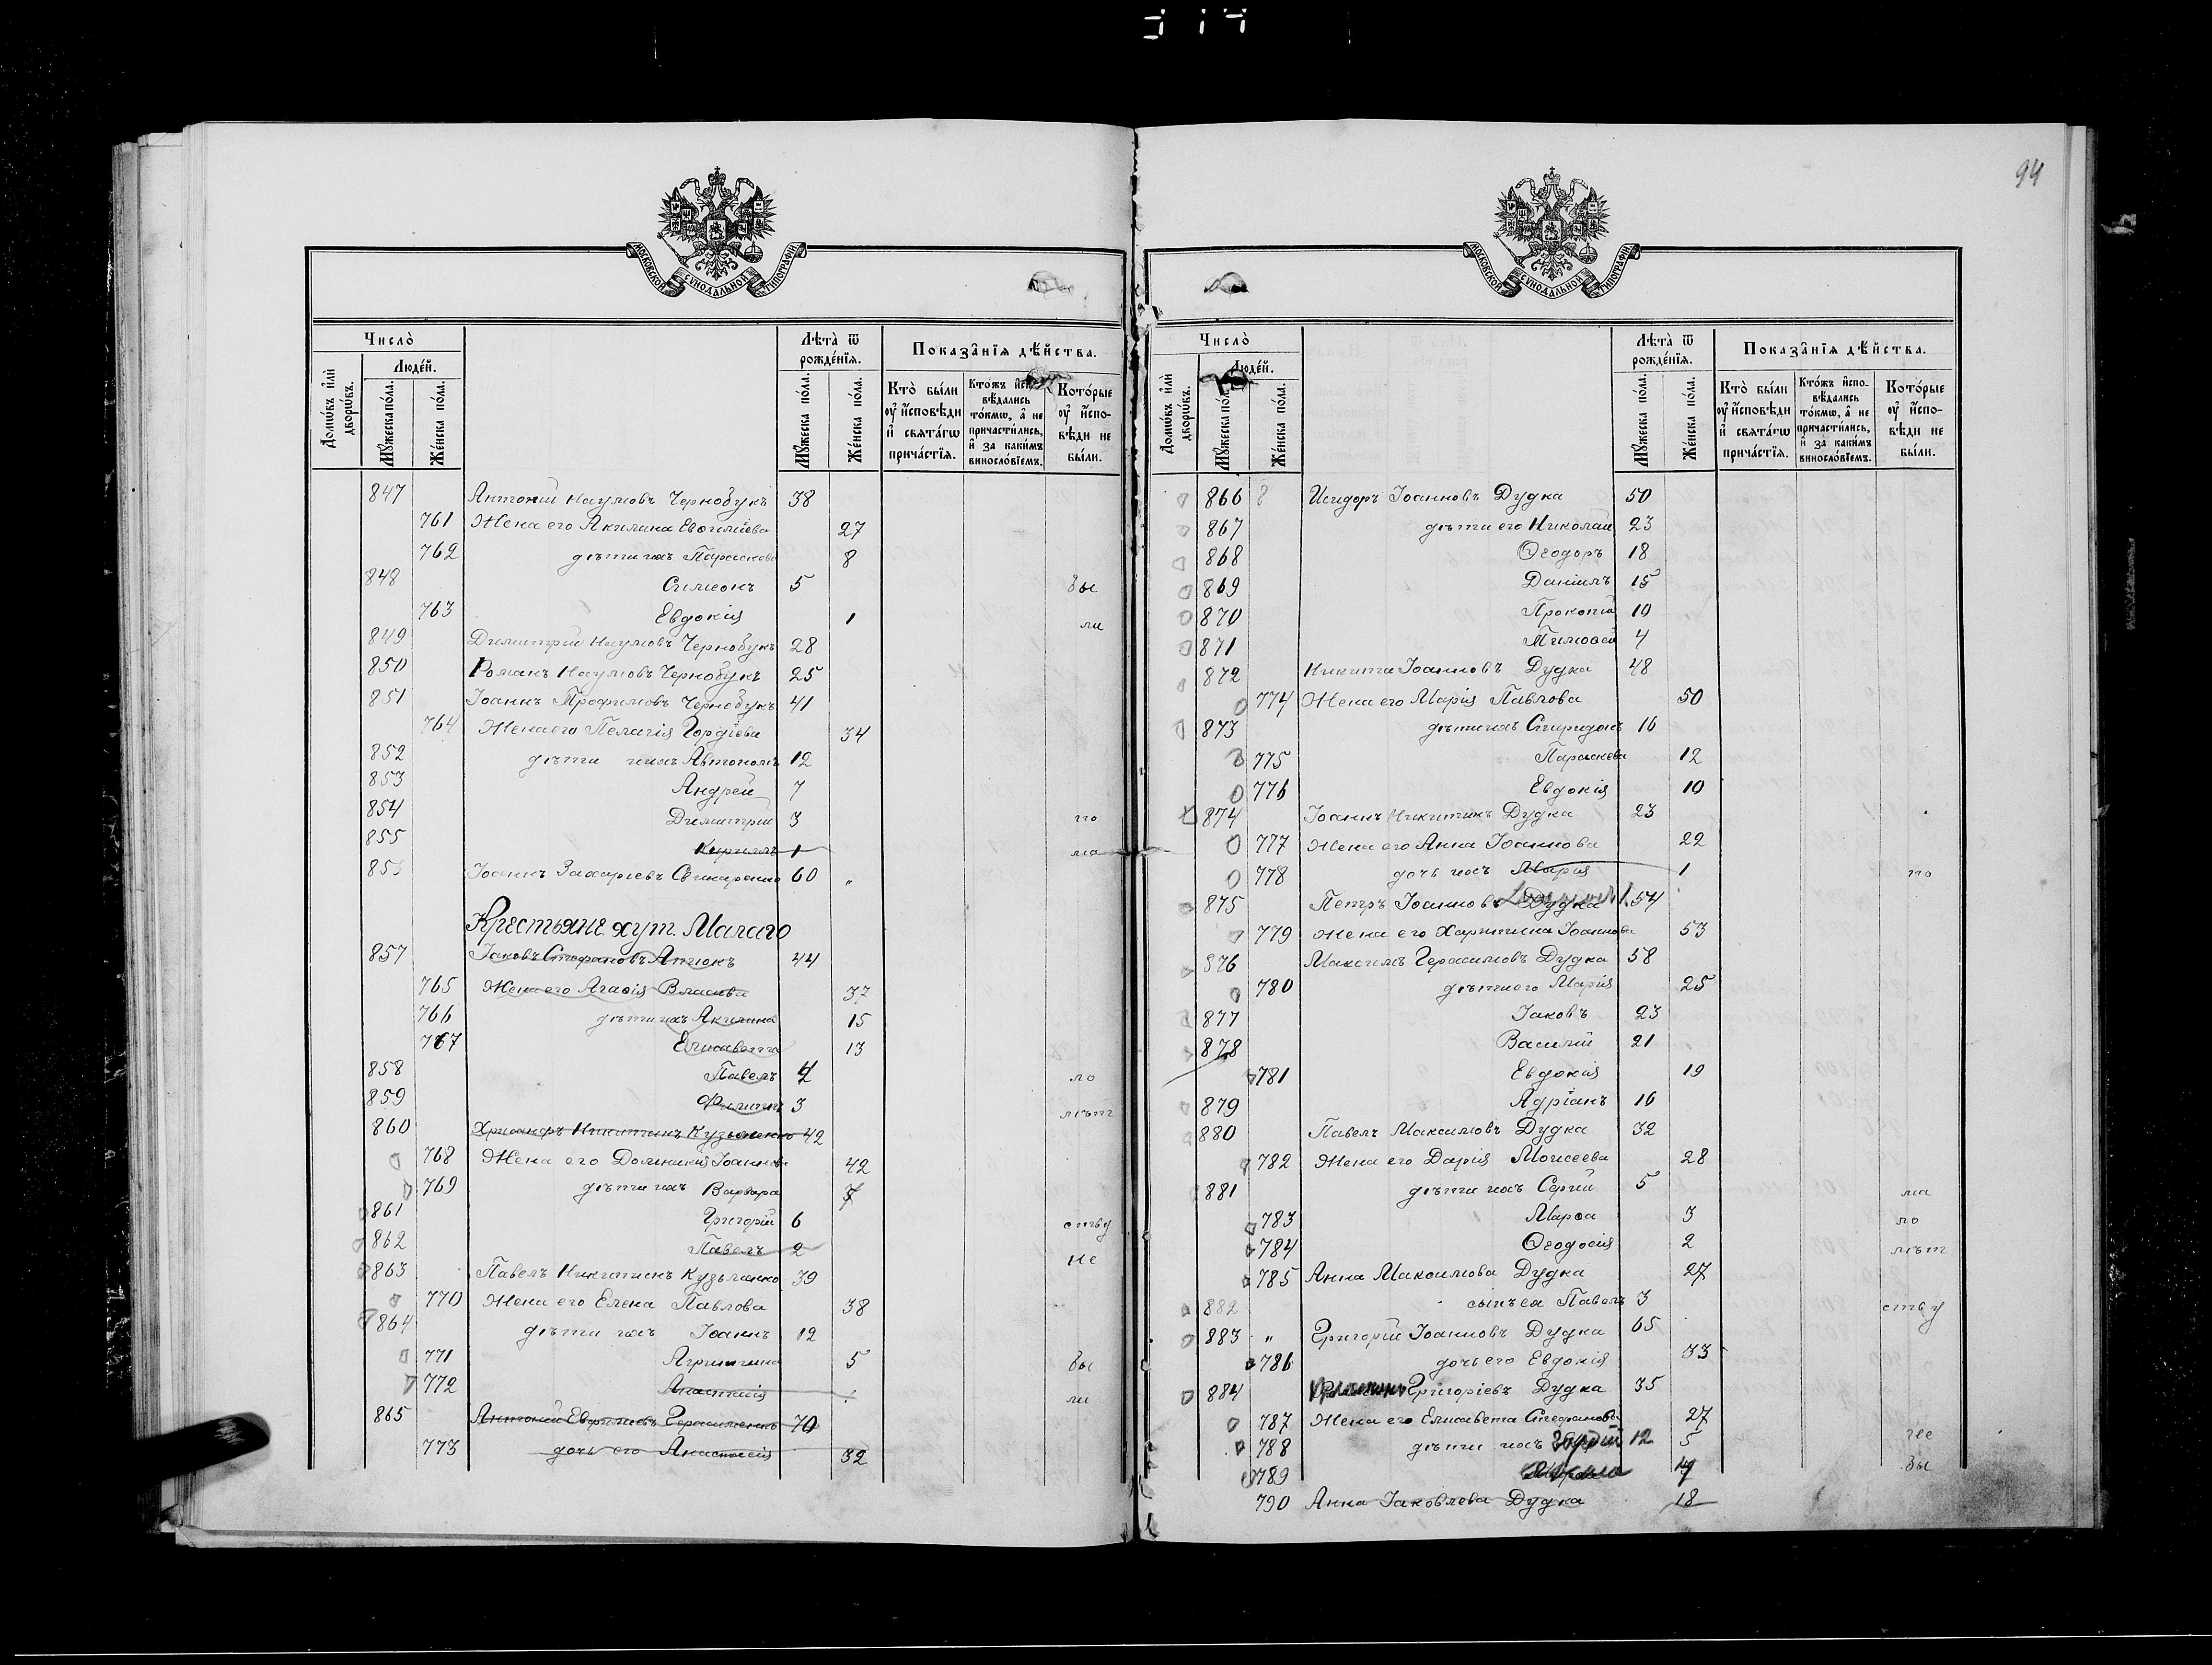 94
МОСКОВСКОЙ СѴНОДАЛЬНОЙ ТИПОГРАФІИ
Число̀
Людѐй.
Лѣта̀ ѿ рождѐнїѧ.
Показа̂нїѧ дѣ́йства.
Домѡ́въ и҆лѝ дворѡ́въ.
Мꙋ́жеска по́ла.
Же́нска по́ла.
Мꙋ́жеска по́ла.
Же́нска по́ла.
Кто̀ бы́ли ᲂу҆ и҆́сповѣди и҆ свѧта́гѡ прича́стїѧ.
Кто́жъ и҆сповѣ́дались то́кмѡ, а҆ не причасти́лись, и҆ за каки́мъ винослѡ́вїемъ.
Кото́рые ᲂу҆ и҆́сповѣди не бы́ли.
847 Антоній Наумовъ Чернобукъ 38
761 Жена его Акилина Евфиміева 27
762 дѣти ихъ Параскева 8
848 Симеонъ 5 бы
763 Евдокія 1 ли
849 Димитрій Наумовъ Чернобукъ 28
850 Романъ Наумовъ Чернобукъ 25
851 Іоаннъ Трофимовъ Чернобукъ 41
764 Жена его Пелагія Гордіева 34
852 дѣти ихъ Автономъ 12
853 Андрей 7
854 Димитрій 3 по
855 Кириллъ 1 ма
Іоаннъ Захаріевъ 60 „
Крестьяне хут. Малаго
857 Іаковъ Стефановъ 44
765 Жена его Агафія Власова 37
766 дѣти ихъ Акилина 15
767 Елисавета 13
858 Павелъ 4 ло
859 Филиппъ 3 лѣт
860 Никитинъ Кузьменко 42
768 Жена его Домникія Іоаннова 42
769 дѣти ихъ Варвара 7
861 Григорій 6 ству
862 Павелъ 2 не
863 Павелъ Никитинъ Кузьменко 39
770 Жена его Елена Павлова 38
864 дѣти ихъ Іоаннъ 12
771 Агриппина 5 бы
772 Анастасія ли
865 Антоній Герасименко 70
773 дочь его Анастасія 32
Число̀
Людѐй.
Лѣта̀ ѿ рождѐнїѧ.
Показа̂нїѧ дѣ́йства.
Домѡ́въ и҆лѝ дворѡ́въ.
Мꙋ́жеска по́ла.
Же́нска по́ла.
Мꙋ́жеска по́ла.
Же́нска по́ла.
Кто̀ бы́ли ᲂу҆ и҆́сповѣди и҆ свѧта́гѡ прича́стїѧ.
Кто́жъ и҆сповѣ́дались то́кмѡ, а҆ не причасти́лись, и҆ за каки́мъ винослѡ́вїемъ.
Кото́рые ᲂу҆ и҆́сповѣди не бы́ли.
МОСКОВСКОЙ СѴНОДАЛЬНОЙ ТИПОГРАФІИ
866 Исидоръ Іоанновъ Дудка 50
867 дѣти его Николай 23
868 Ѳеодоръ 18
869 Даніилъ 15
870 Прокопій 10
871 Тимоѳей 4
872 Никита Іоанновъ Дудка 48
774 Жена его Марія Павлова 50
873 дѣти ихъ Спиридонъ 16
775 Параскева 12
776 Евдокія 10
874 Іоаннъ Никитинъ Дудка 23
777 Жена его Анна Іоаннова 22
778 дочь ихъ Марія 1 по
875 Петръ Іоанновъ Дудка 54
779 Жена его Харитина Іоаннова 53
876 Максимъ Герасимовъ Дудка 58
780 дѣти его Марія 25
877 Іаковъ 23
878 Василій 21
781 Евдокія 19
879 Адріанъ 16
880 Павелъ Максимовъ Дудка 32
782 Жена его Дарія Моисеева 28
881 дѣти ихъ Сергій 5 ма
783 Марѳа 3 ло
784 Ѳеодосія 2 лѣт
785 Анна Максимова Дудка 27
882 сынъ ея Павелъ 3 ству
883 „ Григорій Іоанновъ Дудка 65
786 дочь его Евдокія 33
884 Григоріевъ Дудка 35
787 Жена его Елисавета Стефанова 27
788 дѣти ихъ 12 5 не
789 бы
790 Анна Іаковлева Дудка 18